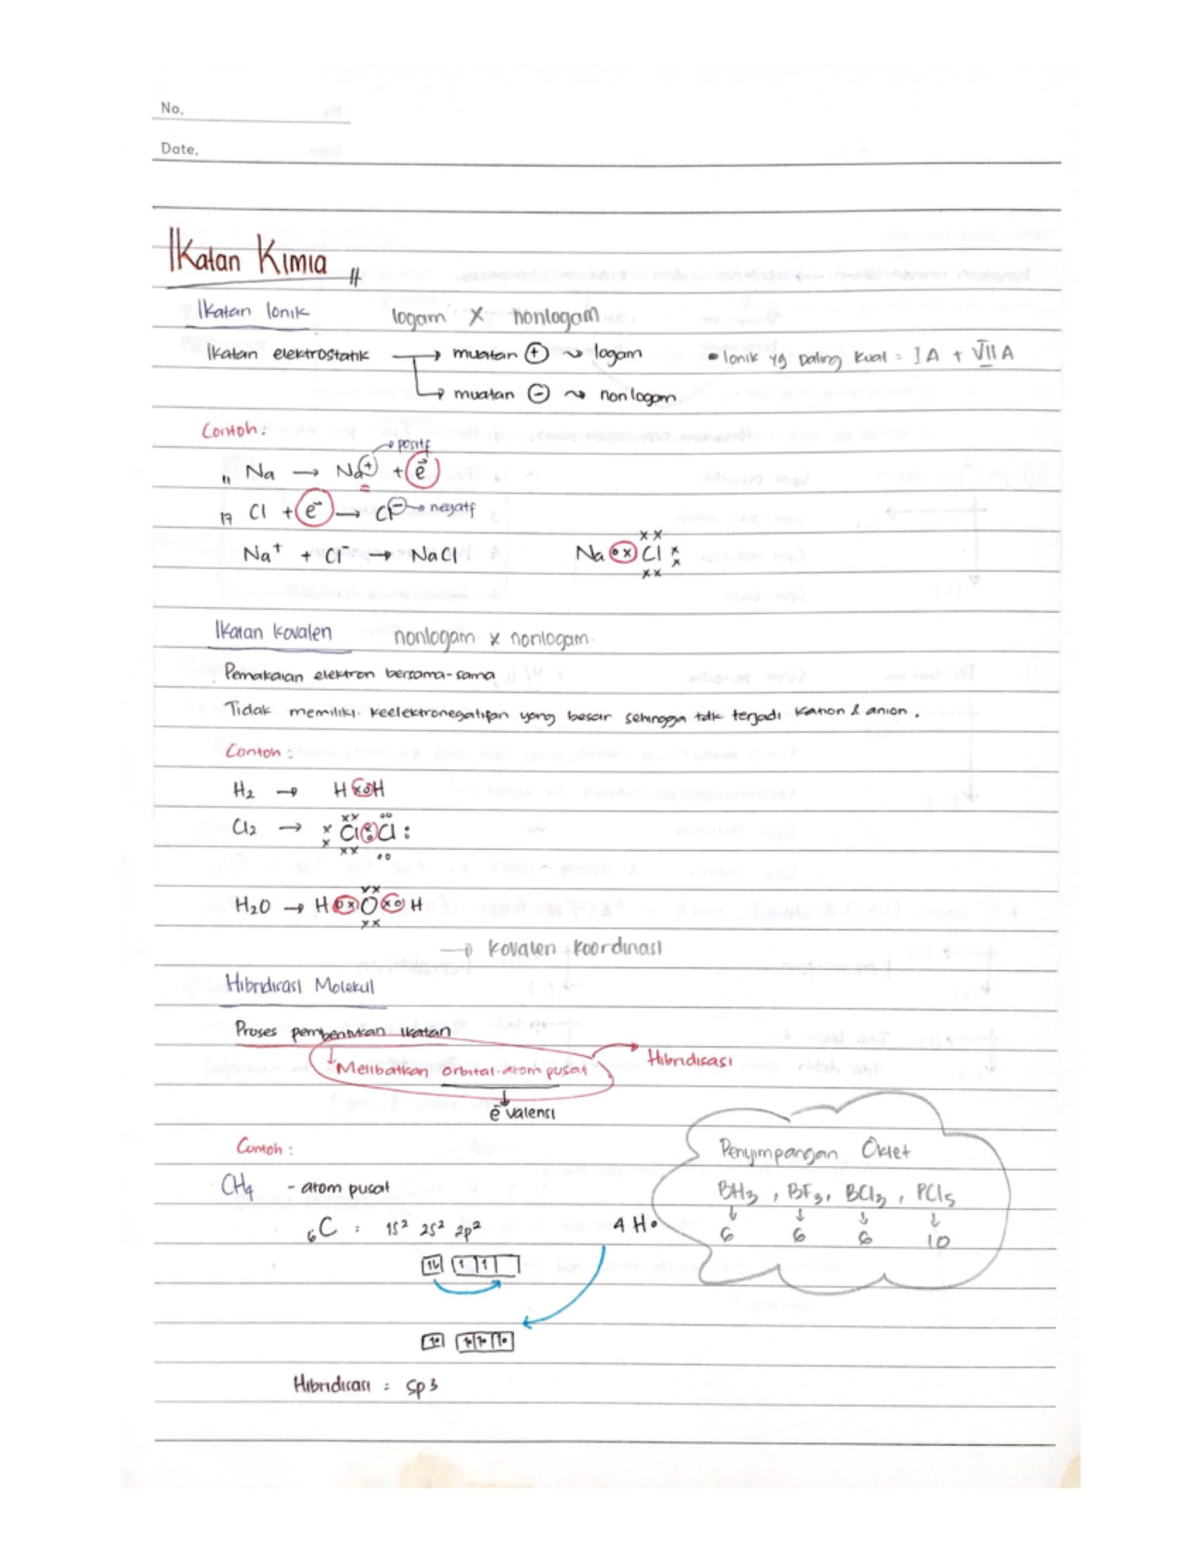 No.
Date.
Ikatan Kimia
Ikatan Ionik logam X nonlogam
Ikatan elektrostatik → muatan + ↝ logam • Ionik yg paling kuat = IA + VIIA
↳ muatan - ↝ nonlogam
Contoh :
→ positf
11 Na → Na+ + e-
17 Cl + e- → Cl- → negatf
Na+ + Cl- → NaCl Na ox Cl xx xx xx
Ikatan kovalen nonlogam x nonlogam.
Pemakaian elektron bersama-sama
Tidak memiliki keelektronegatifan yang besar sehingga tdk terjadi kation & anion.
Contoh :
H2 → H xo H
Cl2 → Cl Cl
H2O → H ox O xo H
→ kovalen koordinasi
Hibridisasi Molekul
Proses pembentukan ikatan
↓ Melibatkan orbital atom pusat → Hibridisasi
↓
e- valensi
Contoh :
CH4 - atom pusat
6C : 1s2 2s2 2p2 4 H•
1l 1 1
Hibridisasi = sp3
Penyimpangan Oktet
BH3 , BF3, BCl3 , PCl5
↓ ↓ ↓ ↓
6 6 6 10